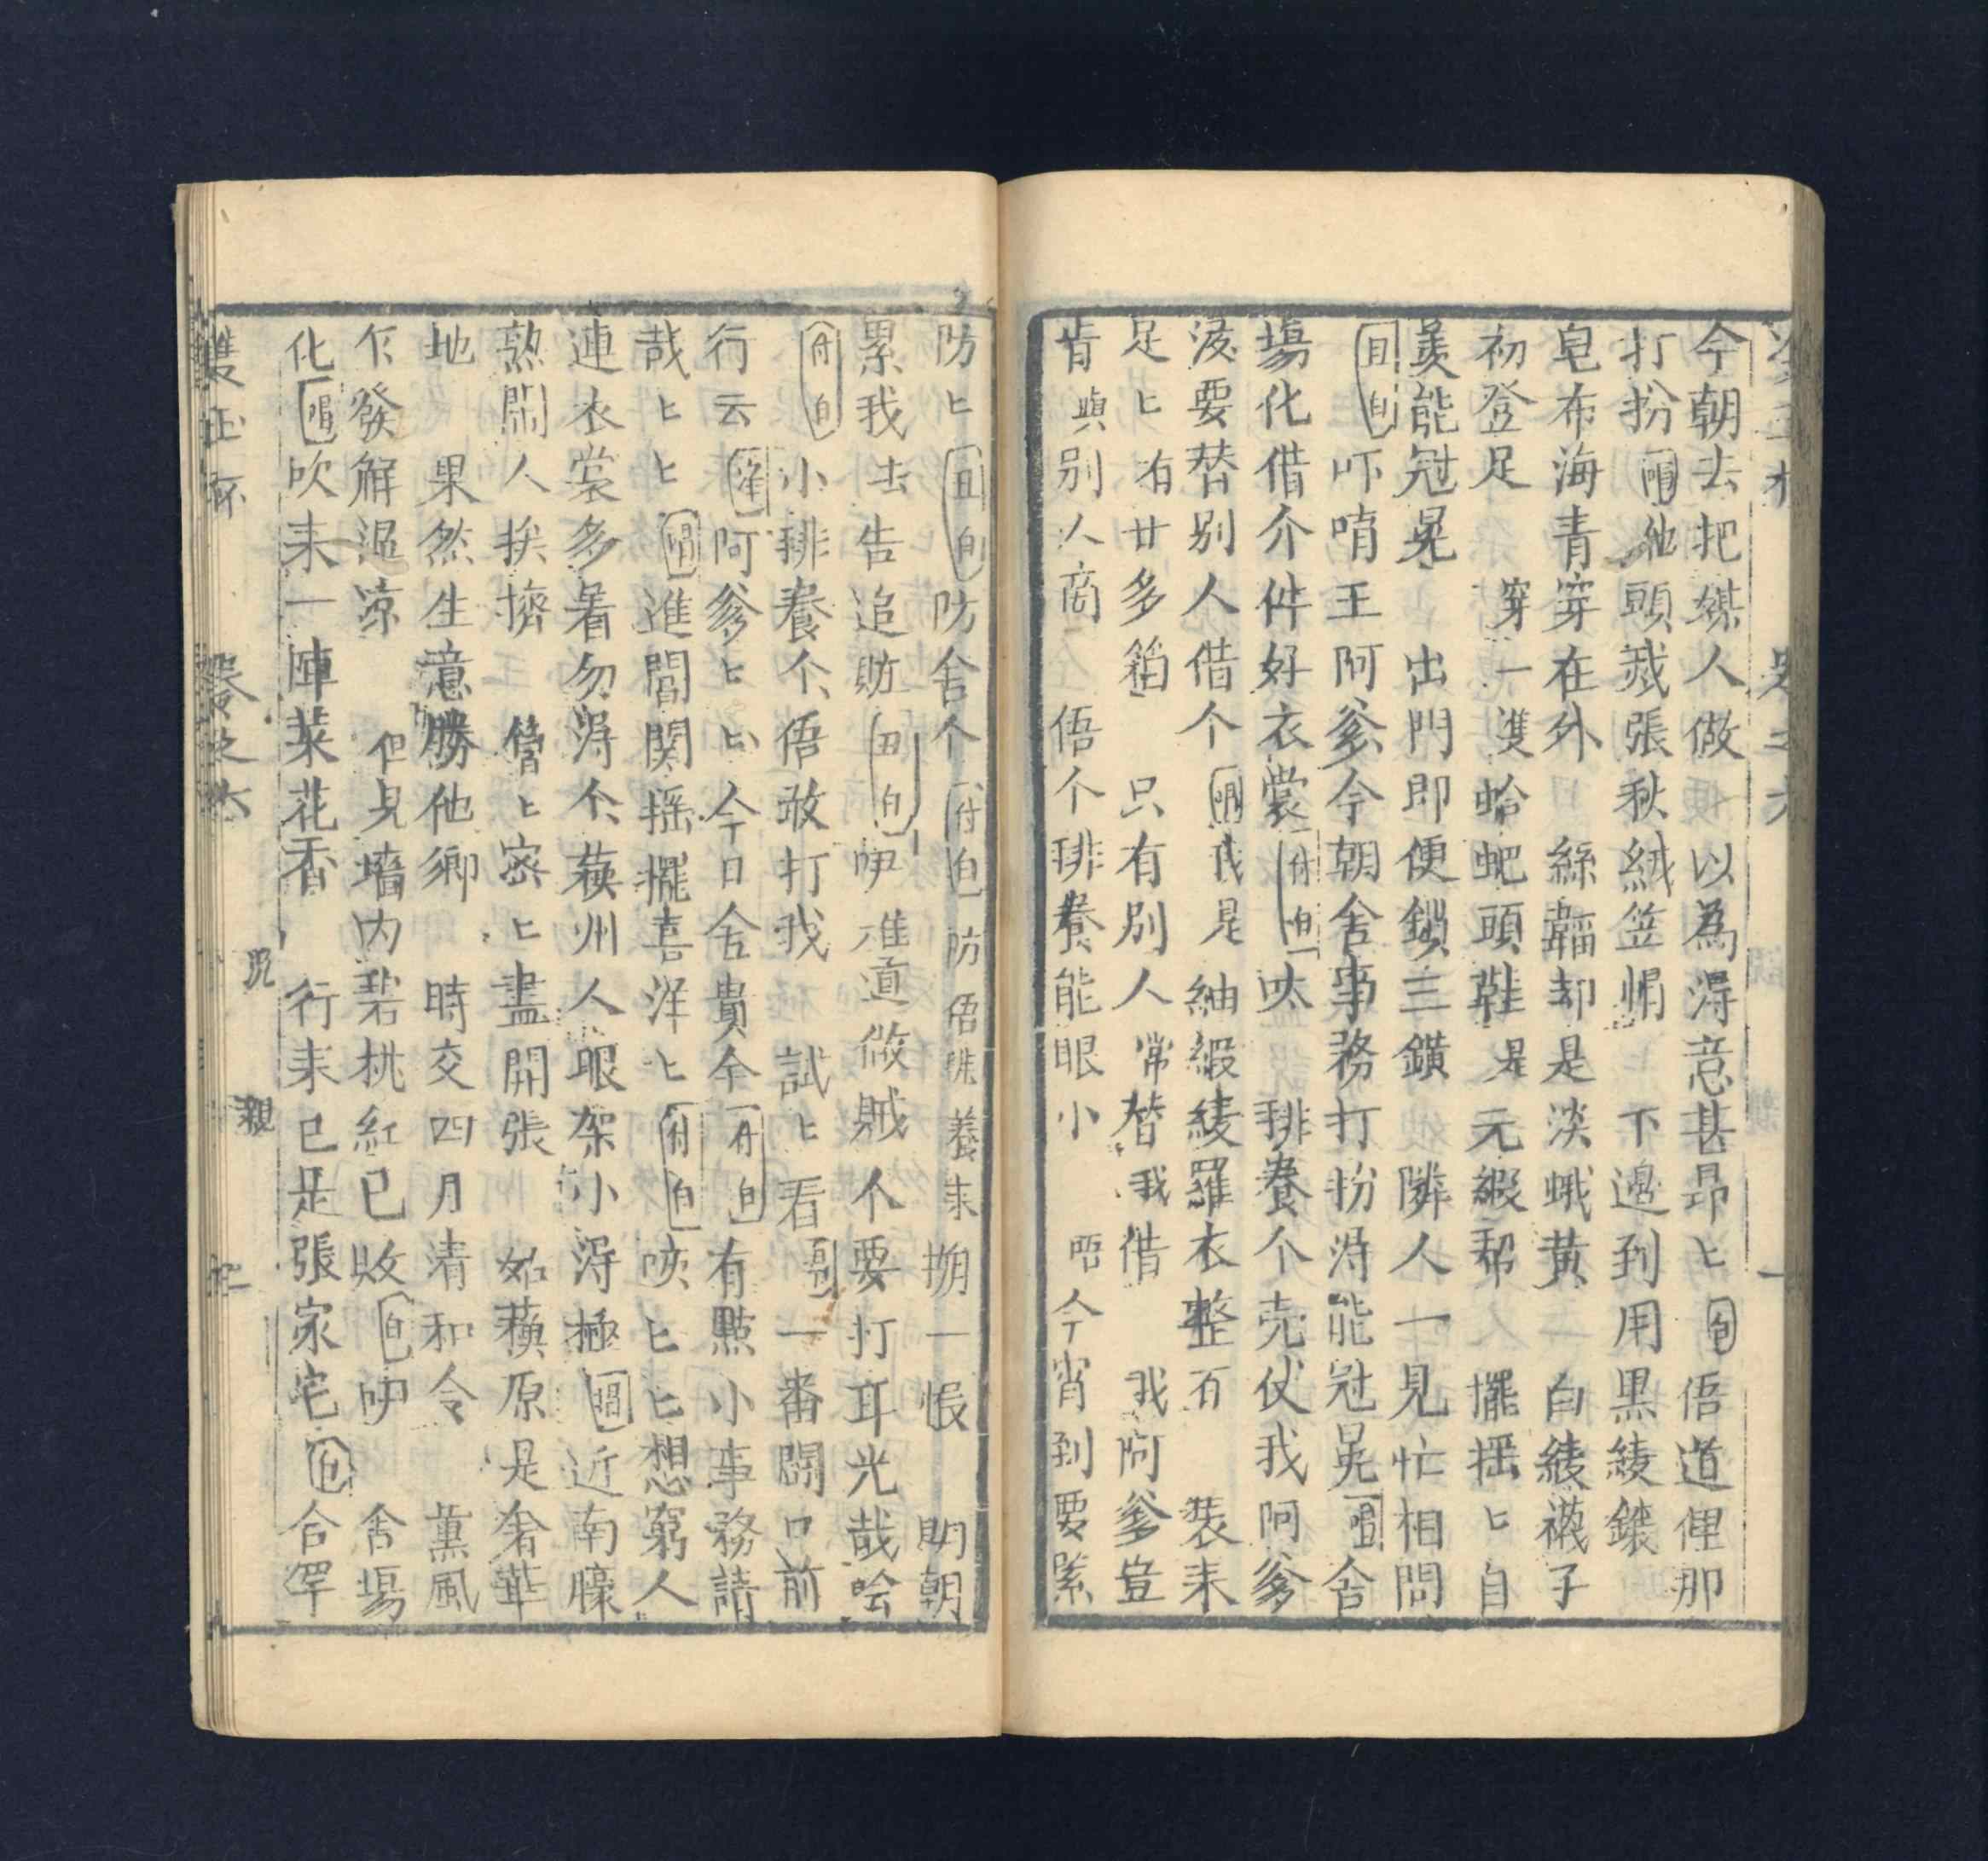 今朝去把媒人做　以為淂意甚昂ヒ(白)俉道俚那
打扮(唱)他頭戴張秋絨笠帽　下邊到用黒綾鑲
皂布海青穿在外　絲鞋却是淡蛾黃　白綾襪子
初登足　穿一雙蛤蚆頭鞋是元緞帮　擺搖ヒ自
羙能冠冕　出門即便鎖三鐄　隣人一見忙相問
(丑白)吓唷王阿爹今朝舍事務打扮淂能冠冕(唱)舍
塲化借介件好衣裳(付白)呔　排養个売伩我阿爹
没要替别人借个(唱)我是紬緞綾羅衣整百　裝来
足ヒ有廿多箱　只有别人常替我借　我阿爹豈
肯與别人商　俉个排養能眼小　哂今宵到要𦂳
防ヒ(丑白)防舍个(付白)防俉排養来掤一悵　明朝
累我去告追賍(丑白)咿　准道做賊个要打耳光哉唥
(付白)小排養个俉敢打我　試ヒ看(唱)一番鬧口前
行云(淨)阿爹ヒヒ今日舍貴全(付白)有㸃小事務請
哉ヒヒ(唱)進閶関摇擺喜洋ヒ(付白)咦ヒヒ想窮人
連衣裳多着勿淂个蘓州人眼架小淂極(唱)近南濠
熱閙人挨擠　營ヒ宻ヒ盡開張　姑蘓原是奢華
地　果然生意勝他鄉　時交四月清和令　薫風
乍發解温凉　但見墻内碧桃紅已敗(白)咿　舍塲
化(唱)吹来一陣菜花香　行来已是張家宅(白)合罕
雙玉杯　卷之六　説　親　二